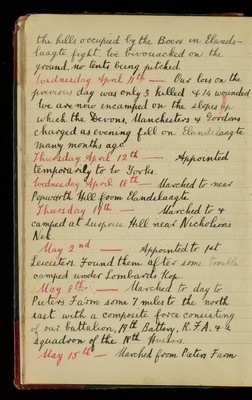 the hills occupied by the Boers in Elands-
laagte fight. We bivouacked on the
ground, no tents being pitched.
Wednesday April 11th — Our loss on the
previous day was only 3 killed & 14 wounded
We are now incamped on the slopes up
which the Devons, Manchesters & Gordons
charged as evening fell on Elandslaagte
many months ago.
Thursday April 12th — Appointed
temporarily to to Yorks.
Wednesday April 18th — Marched to near
Pepworth Hill from Elandslaagte.
Thursday 19th — Marched to &
camped at Surprise Hill near Nicholsons
Nek.
May 2nd — Appointed to 1st
Leicesters. Found them after some trouble
camped under Lombards Kop.
May 8th — Marched to day to
Pieters Farm some 7 miles to the north
east with a composite force consisting
of our battalion, 19th Battery, R.F.A. & a
squadron of the 18th Hussars.
May 15th — Marched from Pieters Farm